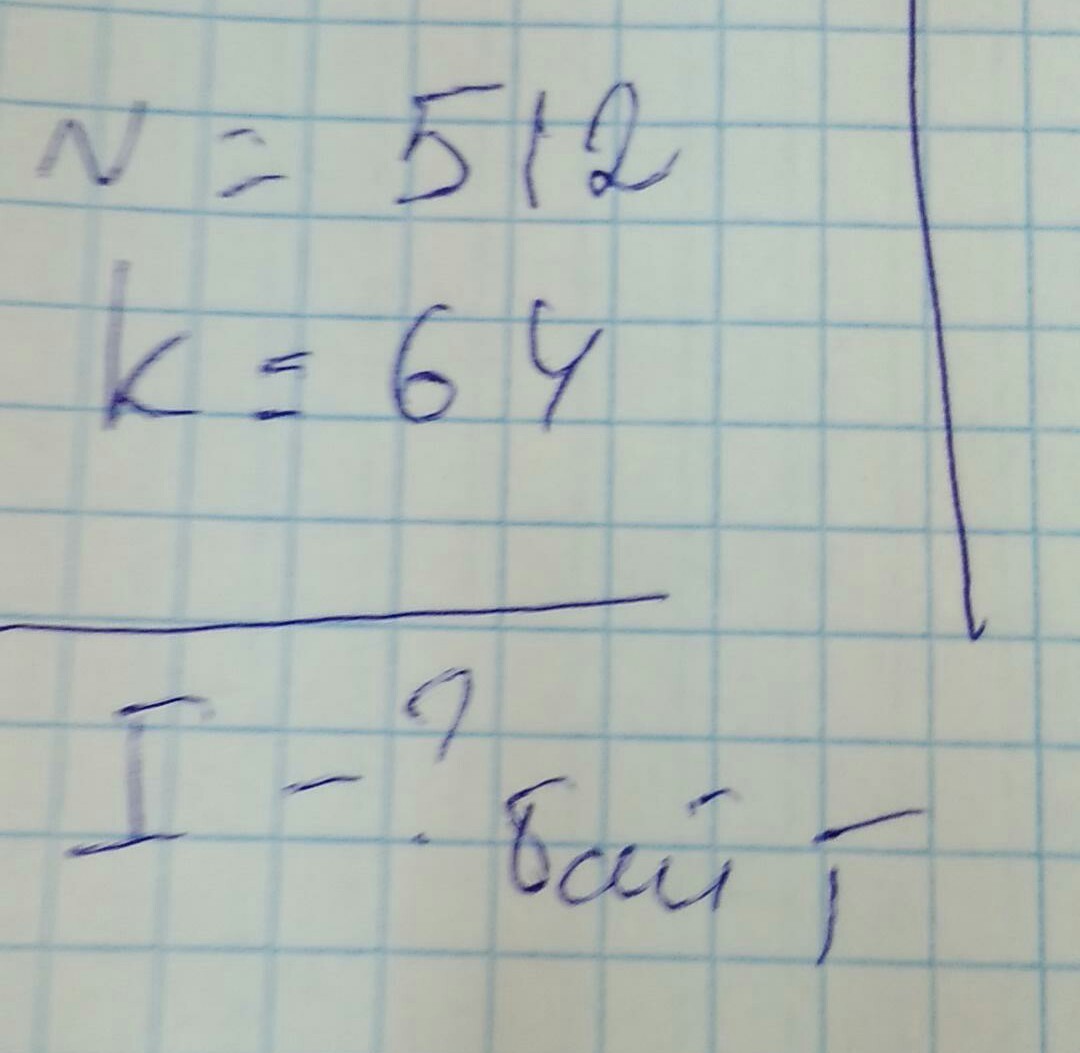 N = 512
k = 64
I - ? байт